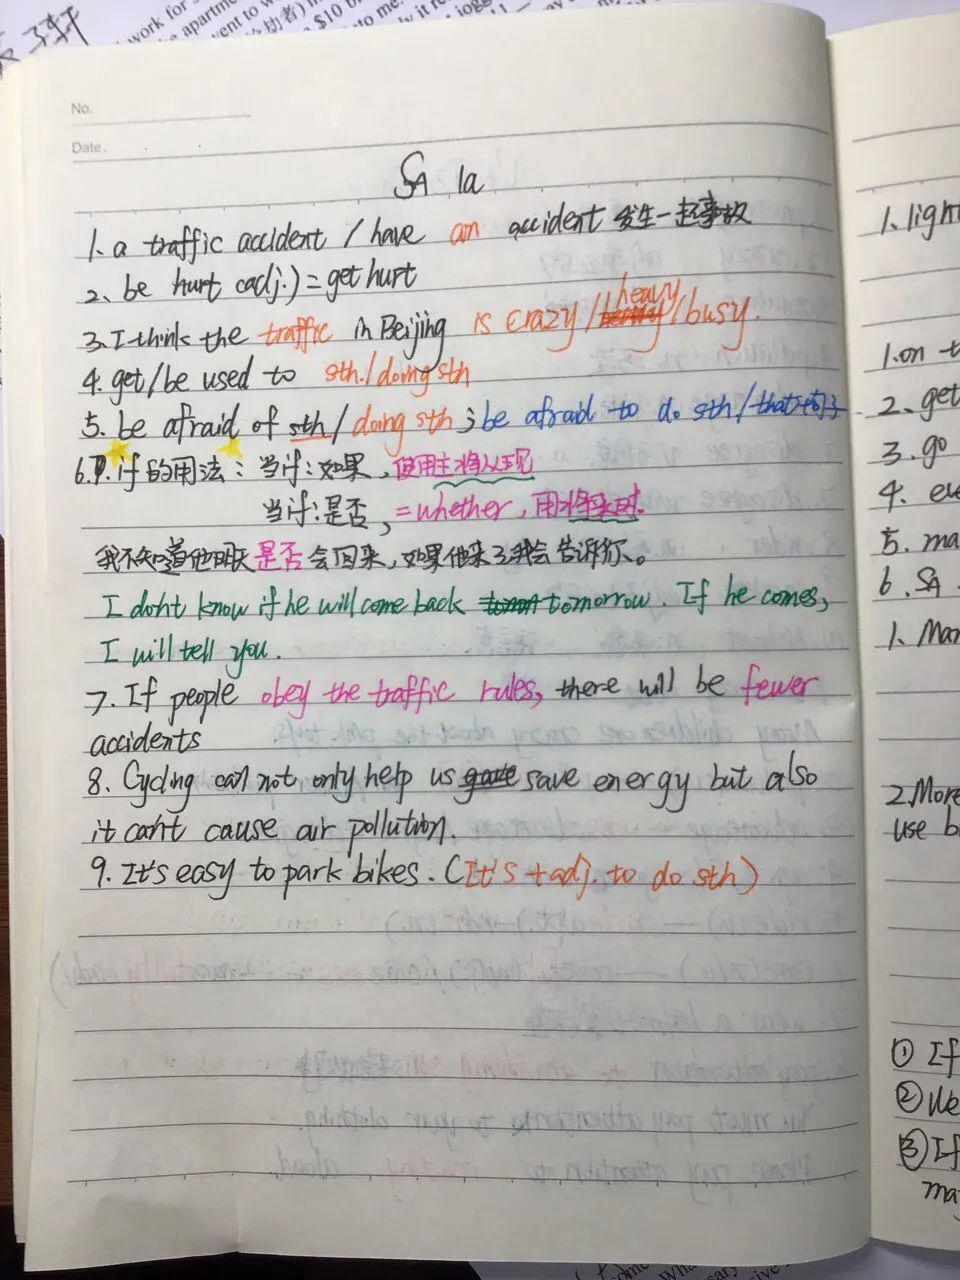 work for
apartme
went to w
$10 b
to me.
jogg
轩
No.
Date.
SA 1a
1. a traffic accident / have an accident 发生一起事故
2. be hurt (adj.) = get hurt
3. I think the traffic in Beijing is crazy / heavy / busy.
4. get/be used to sth./doing sth
5. be afraid of sth / doing sth ; be afraid to do sth / that+句子
6. if的用法：当if：如果，使用主将从现
当if：是否，= whether，用将来时.
我不知道他明天是否会回来，如果他来了我会告诉你。
I don't know if he will come back tomorrow. If he comes,
I will tell you.
7. If people obey the traffic rules, there will be fewer
accidents
8. Cycling can not only help us save energy but also
it can't cause air pollution.
9. It's easy to park bikes. (It's + adj. to do sth)
1. ligh
1. on t
2. get
3. go
4. eve
5. ma
6. SA
1. Mar
2. More
use b
① If
② We
③ If
may